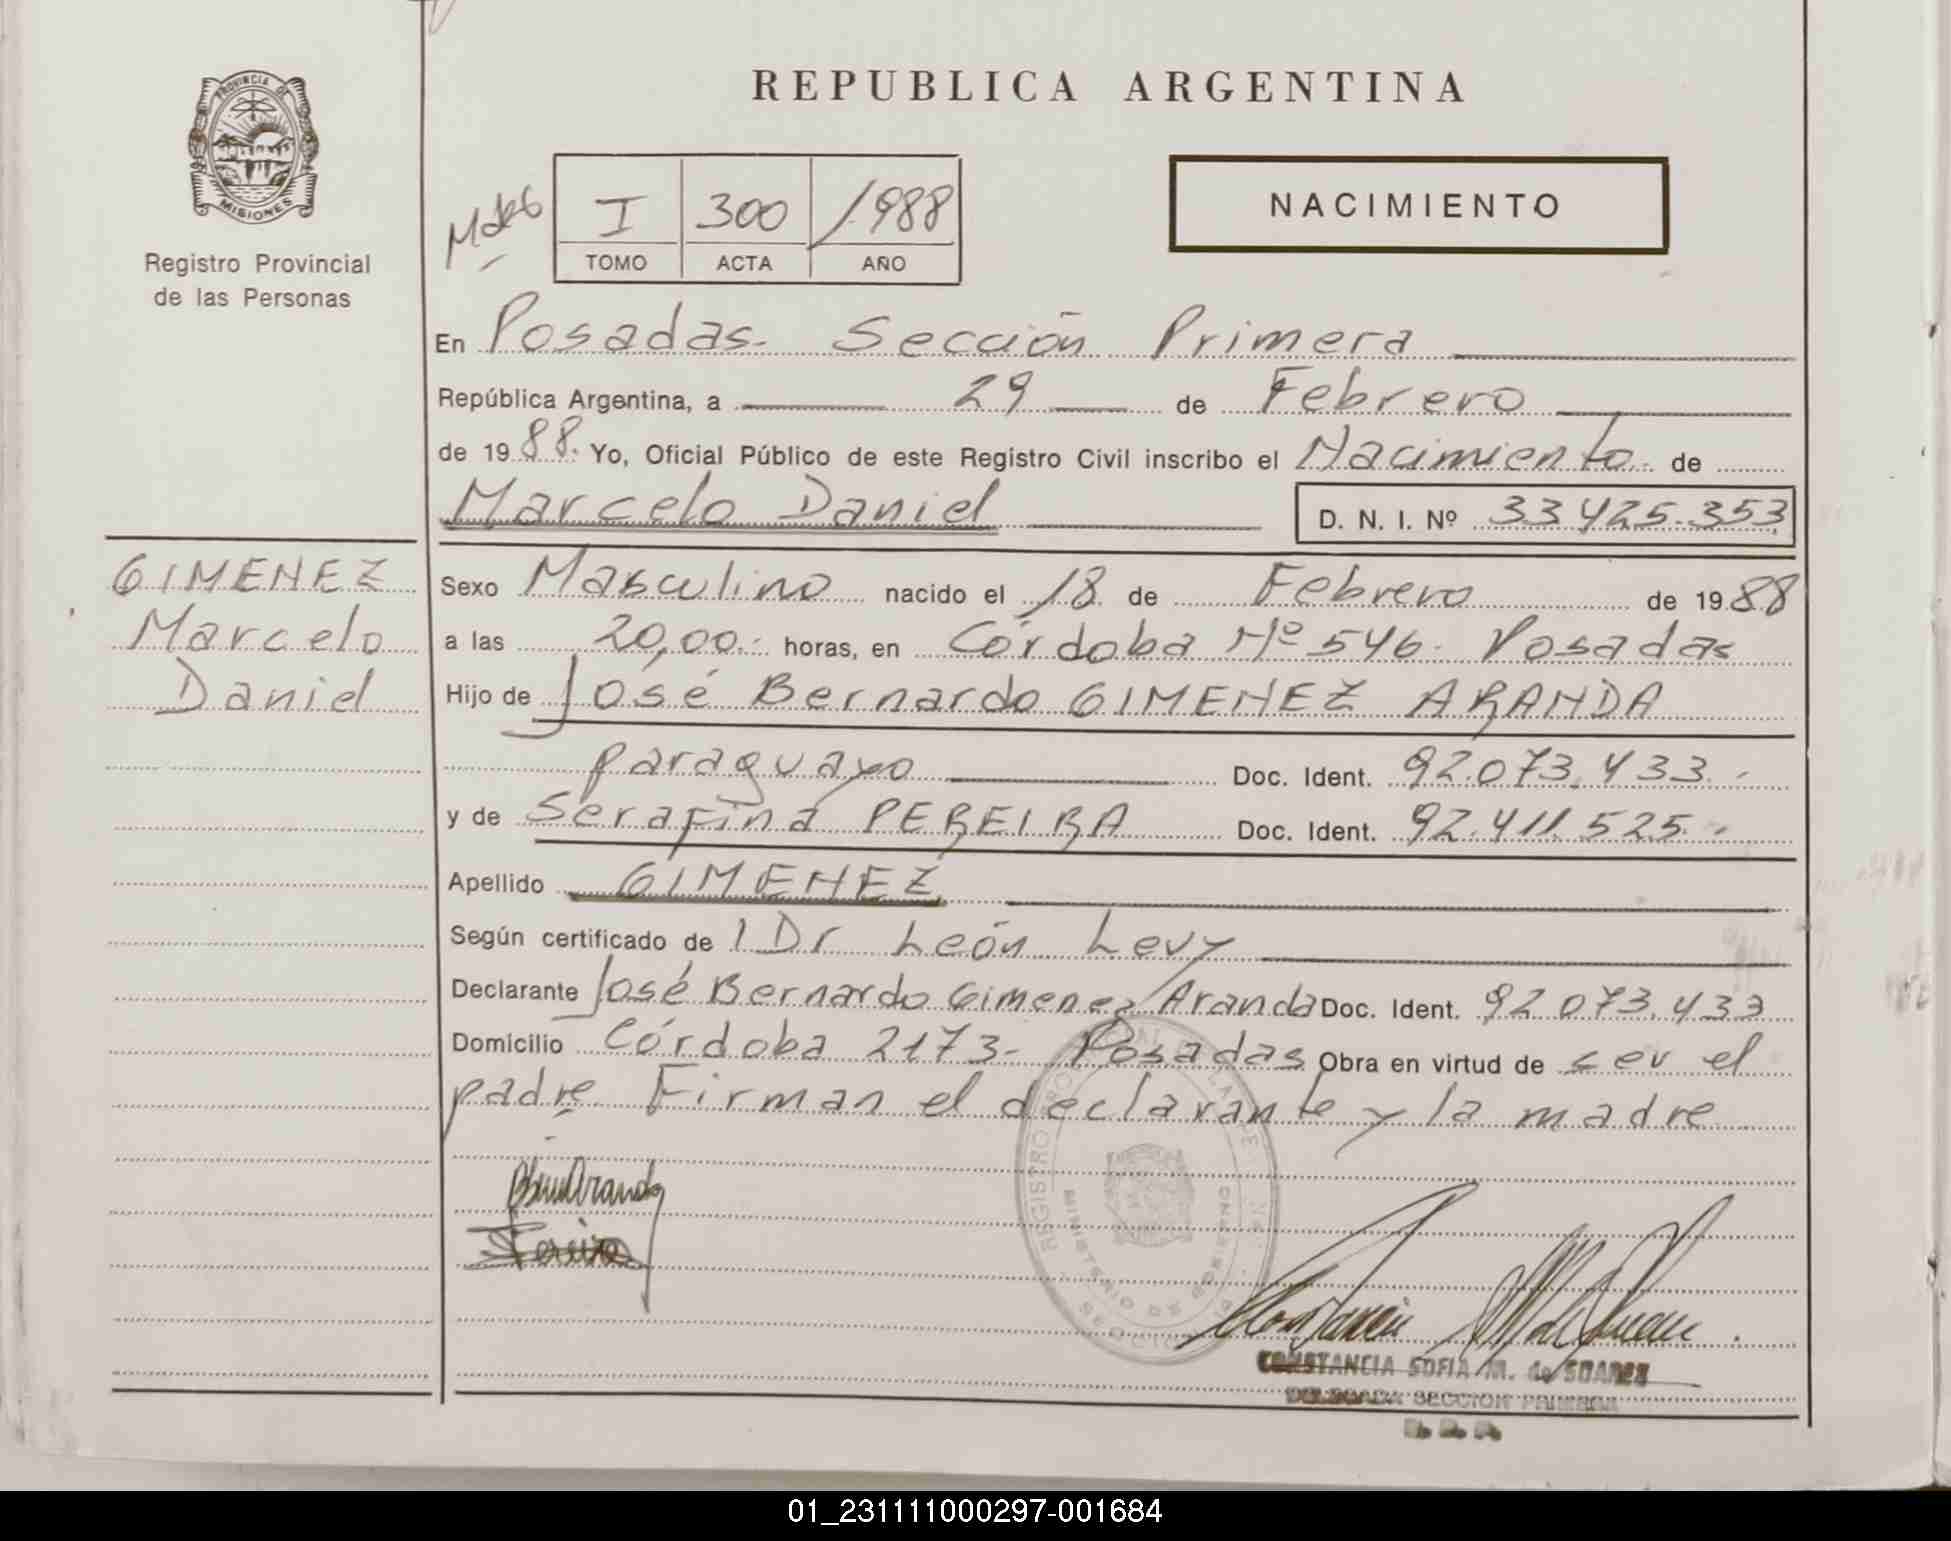 PROVINCIA DE
MISIONES
Registro Provincial
de las Personas
GIMENEZ
Marcelo
Daniel
REPUBLICA ARGENTINA
I 300 1988
TOMO ACTA AÑO
NACIMIENTO
En Posadas. Sección Primera
República Argentina, a 29 de Febrero
de 1988. Yo, Oficial Público de este Registro Civil inscribo el Nacimiento de
Marcelo Daniel D. N. I. Nº 33425.353
Sexo Masculino nacido el 18 de Febrero de 1988
a las 20,00.- horas, en Córdoba Nº 546. Posadas
Hijo de José Bernardo GIMENEZ ARANDA
paraguayo Doc. Ident. 92.073.433.-
y de Serafina PEREIRA Doc. Ident. 92.411.525.-
Apellido GIMENEZ
Según certificado de l Dr León Levy
Declarante José Bernardo Gimenez Aranda Doc. Ident. 92.073.433
Domicilio Córdoba 2173- Posadas Obra en virtud de ser el
padre. Firman el declarante y la madre
REGISTRO
MINISTERIO DE GOBIERNO
CONSTANCIA SOFIA M. de SUAREZ
DELEGADA SECCION PRIMERA
01_231111000297-001684